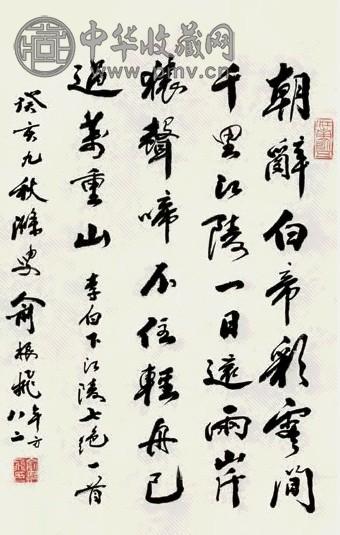 中华收藏网
www.pmv.cn
朝辭白帝彩雲間
千里江陵一日還兩岸
猿聲啼不住輕舟已
過萬重山 李白下江陵七绝一首
癸亥九秋滌叟俞振飛年方八二